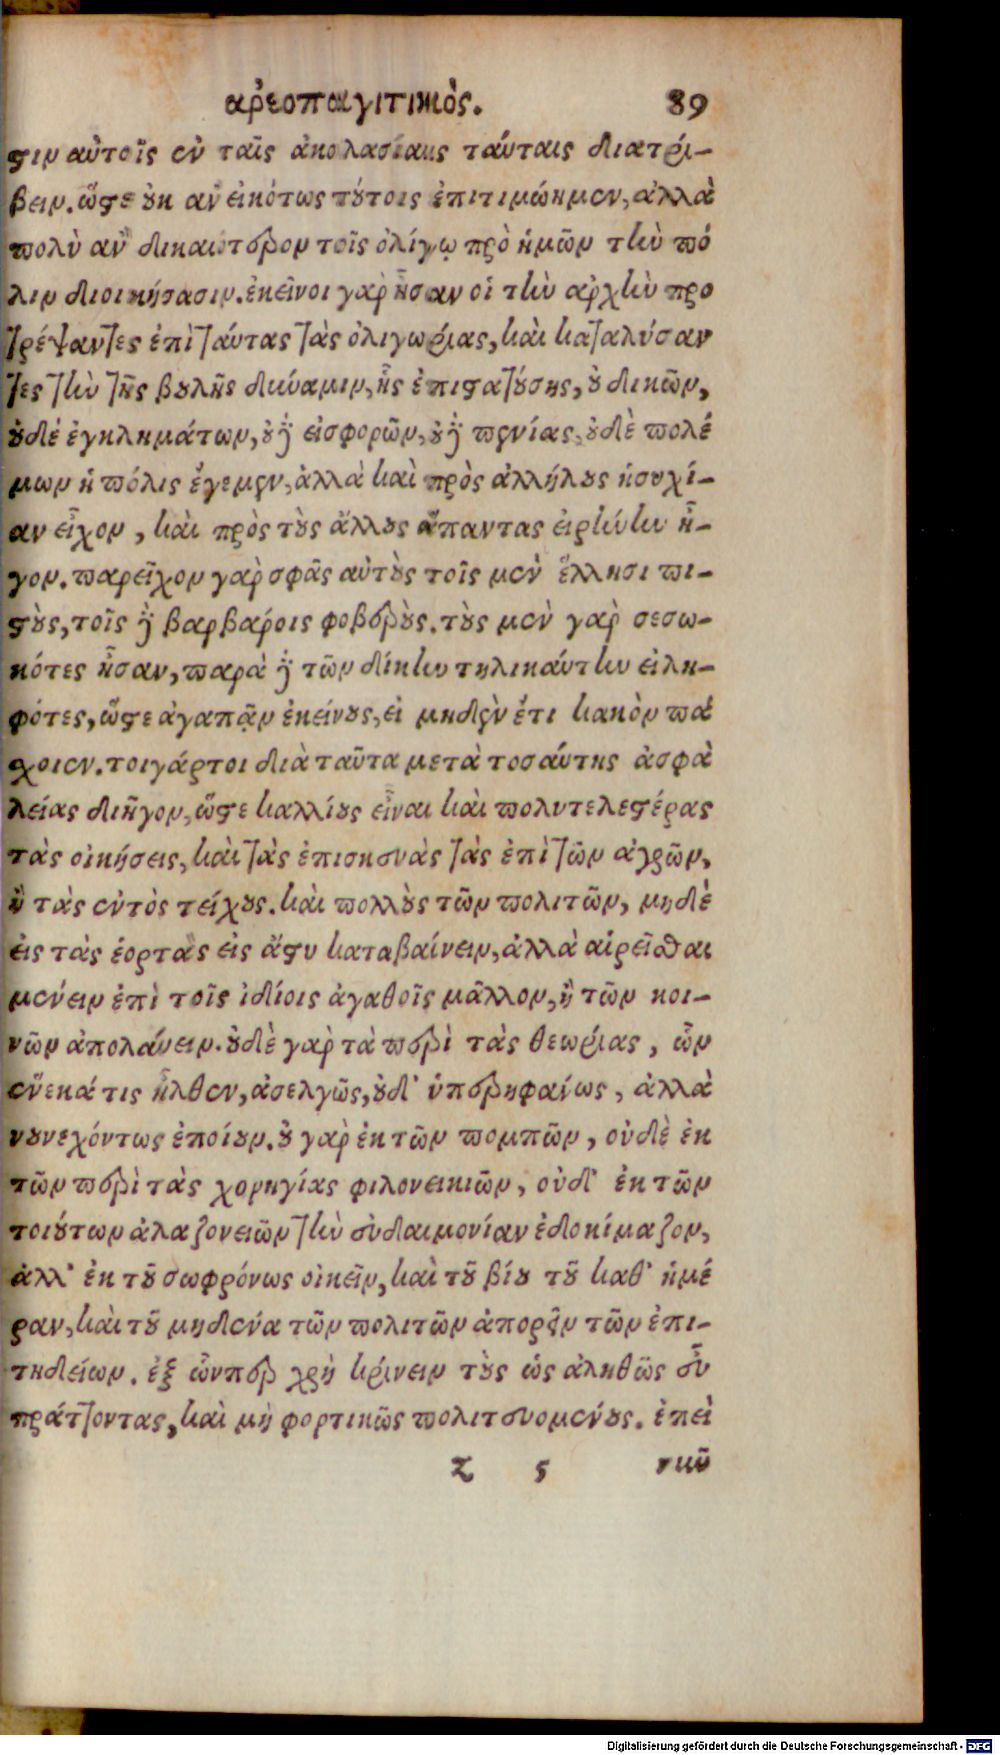 αρεοπαγιτικὸς. 89
στιν αὐτοῖς ἐν ταῖς ἀκολασίαις ταύταις διατρί-
βειν. ὥστε οὐκ ἂν εἰκότως τούτοις ἐπιτιμῴημεν, ἀλλὰ
πολὺ ἂν δικαιότερον τοῖς ὀλίγῳ πρὸ ἡμῶν τὴν πό
λιν διοικήσασιν. ἐκεῖνοι γὰρ ἦσαν οἱ τὴν αρχὴν προ
τρέψαντες ἐπὶ ταύτας τὰς ὀλιγωρίας, καὶ καταλύσαν
τες τὴν τῆς βουλῆς δύναμιν, ἧς ἐπιστατούσης, οὐ δικῶν,
οὐδὲ ἐγκλημάτων, οὐδὲ εἰσφορῶν, οὐδὲ πενίας, οὐδὲ πολέ
μων ἡ πόλις ἔγεμεν, ἀλλὰ καὶ πρὸς ἀλλήλους ἡσυχί-
αν εἶχον, καὶ πρὸς τοὺς ἄλλους ἅπαντας εἰρήνην ἦ-
γον. παρεῖχον γὰρ σφᾶς αὐτοὺς τοῖς μὲν ἕλλησι πι-
στοὺς, τοῖς δὲ βαρβάροις φοβεροὺς. τοὺς μὲν γὰρ σεσω-
κότες ἦσαν, παρὰ δὲ τῶν δίκην τηλικαύτην εἰλη-
φότες, ὥστε ἀγαπᾷν ἐκείνους, εἰ μηδὲν ἔτι κακὸν πά
σχοιεν. τοιγάρτοι διὰ ταῦτα μετὰ τοσαύτης ἀσφα
λείας διῆγον, ὥστε καλλίους εἶναι καὶ πολυτελεστέρας
τὰς οἰκήσεις, καὶ τὰς ἐπισκευὰς τὰς ἐπὶ τῶν ἀγρῶν,
ἢ τὰς ἐντὸς τείχους. καὶ πολλοὺς τῶν πολιτῶν, μηδὲ
εἰς τὰς ἑορτὰς εἰς ἄστυ καταβαίνειν, ἀλλὰ αἱρεῖσθαι
μένειν ἐπὶ τοῖς ἰδίοις ἀγαθοῖς μᾶλλον, ἢ τῶν κοι-
νῶν ἀπολαύειν. οὐδὲ γὰρ τὰ περὶ τὰς θεωρίας, ὧν
ἕνεκά τις ἦλθεν, ἀσελγῶς, οὐδ᾽ ὑπερηφάνως, ἀλλὰ
νουνεχόντως ἐποίουν. οὐ γὰρ ἐκ τῶν πομπῶν, οὐδὲ ἐκ
τῶν περὶ τὰς χορηγίας φιλονεικιῶν, οὐδ᾽ ἐκ τῶν
τοιούτων ἀλαζονειῶν τὴν εὐδαιμονίαν ἐδοκίμαζον,
ἀλλ᾽ ἐκ τοῦ σωφρόνως οἰκεῖν, καὶ τοῦ βίου τοῦ καθ᾽ ἡμέ
ραν, καὶ τοῦ μηδένα τῶν πολιτῶν ἀπορεῖν τῶν ἐπι-
τηδείων. ἐξ ὧνπερ χρὴ κρίνειν τοὺς ὡς ἀληθῶς εὖ
πράττοντας, καὶ μὴ φορτικῶς πολιτευομένους. ἐπεὶ
z 5 νυῦ
Digitalisierung gefördert durch die Deutsche Forschungsgemeinschaft - DFG